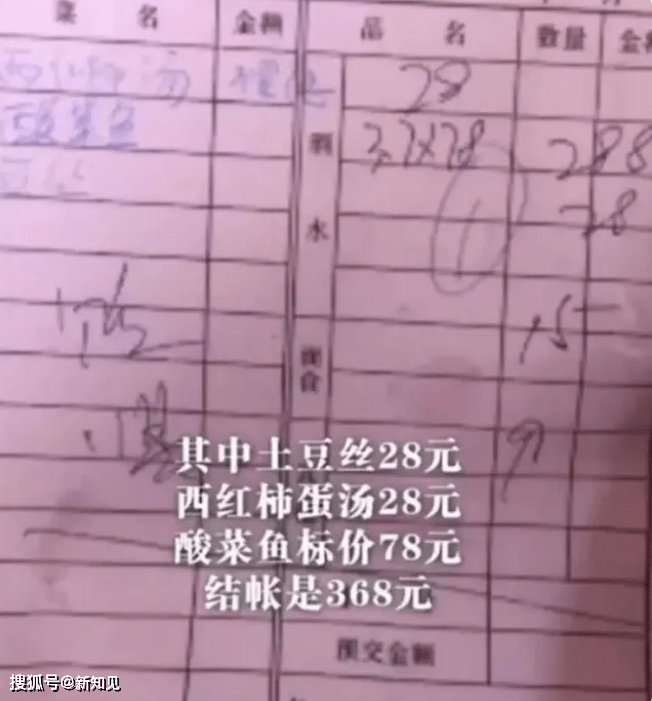 菜 名 金额 品 名 数量 金
西红柿汤 28
酸菜鱼 3.7×78 288
豆丝 28
酒 水
15
面食
其中土豆丝28元
西红柿蛋汤28元
酸菜鱼标价78元
结帐是368元
预交金额
搜狐号@新知见